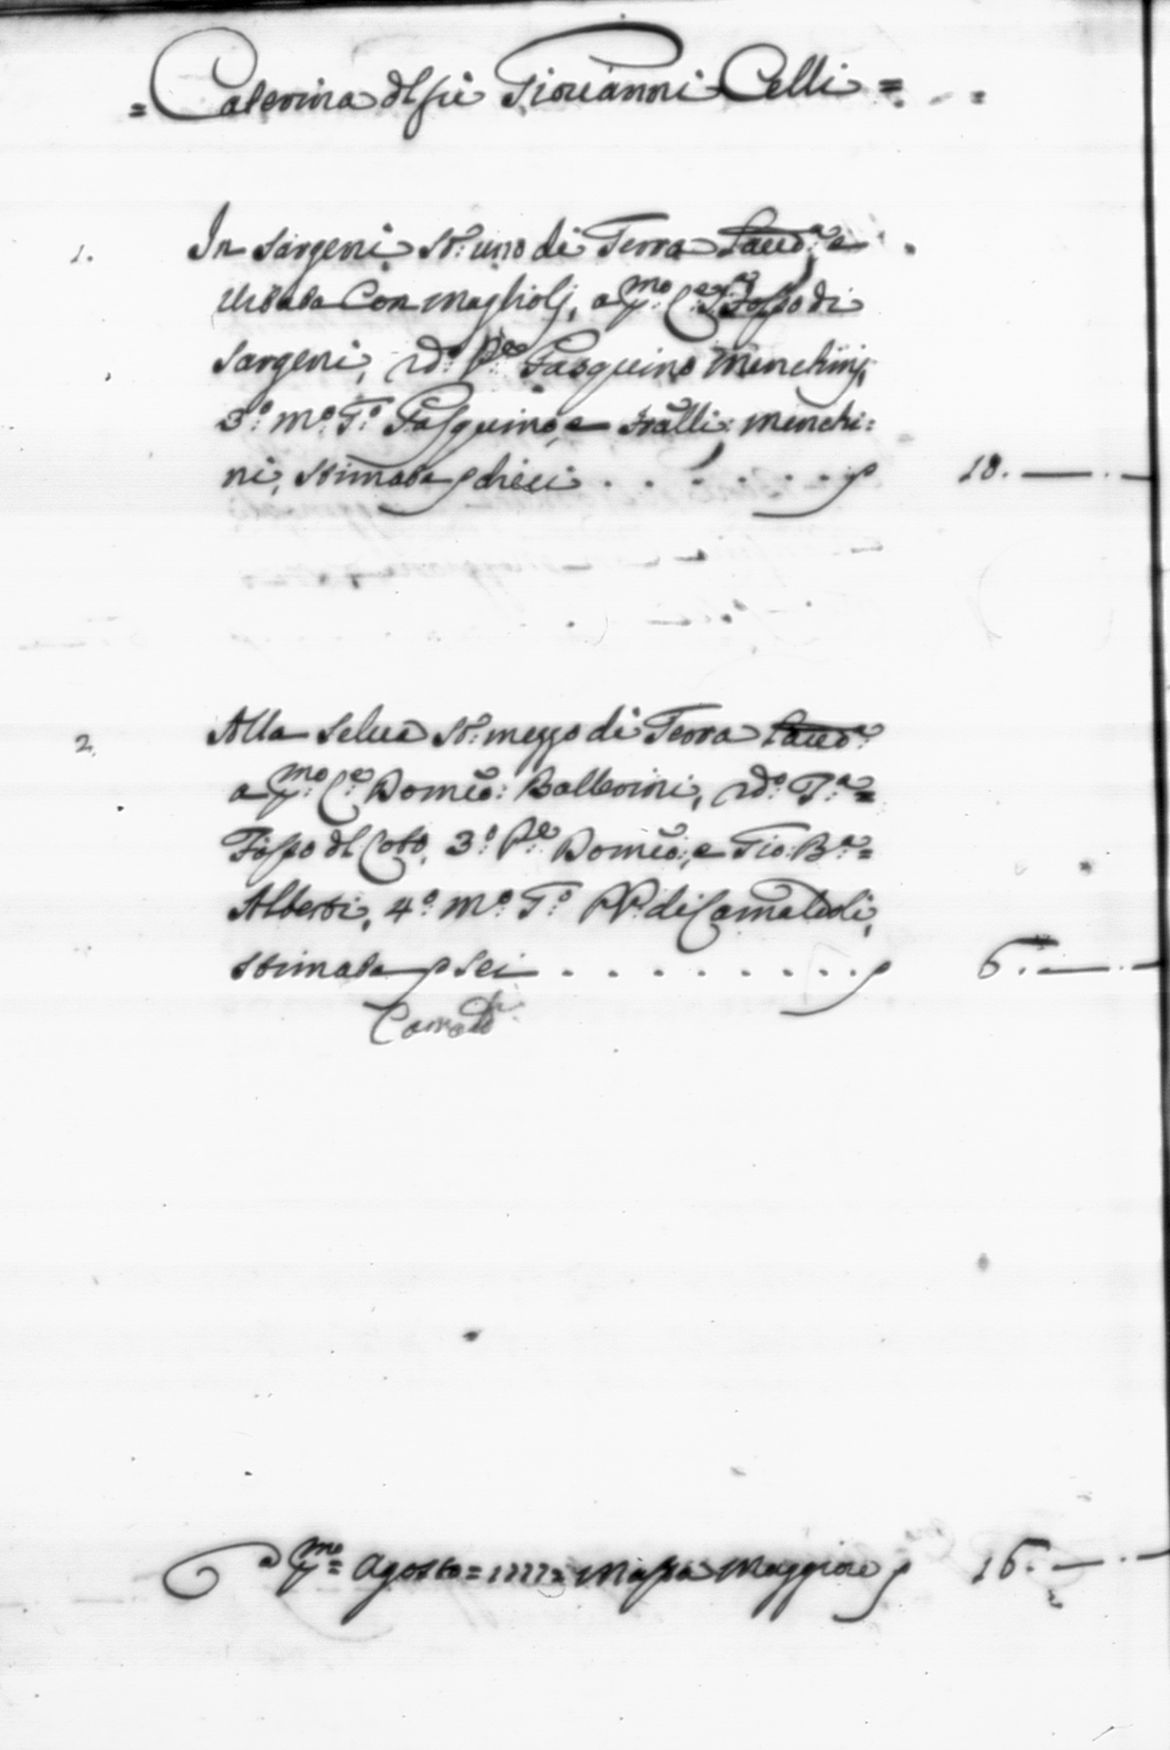 = Caterina dl fù Giovanni Celli =
1. In Sargeni St: uno di Terra Lauor:a e
Vitata Con Magliolj, a p:mo C:e Fosso di
Sargeni, 2do P:e Pasquino Menchinj,
3:o m:o G:o Pasquino, e Fratelli: Menchi:
ni, Stimata p dieci . . . . . . . 10. —— . —
2. Alla Selua St: mezzo di Terra Lauor:a
a p:mo C:e Domẽo: Ballerini, 2do T:a =
Fosso dl Coto, 3:o P:e Domẽo:, e Gio: B:a =
Alberti, 4:o m:o G:o PP. di Camaldoli,
Stimata p Sei . . . . . . . . . 6. —— . —
a p:mo = Agosto = 1777 = Massa Maggiore 16. —— . —